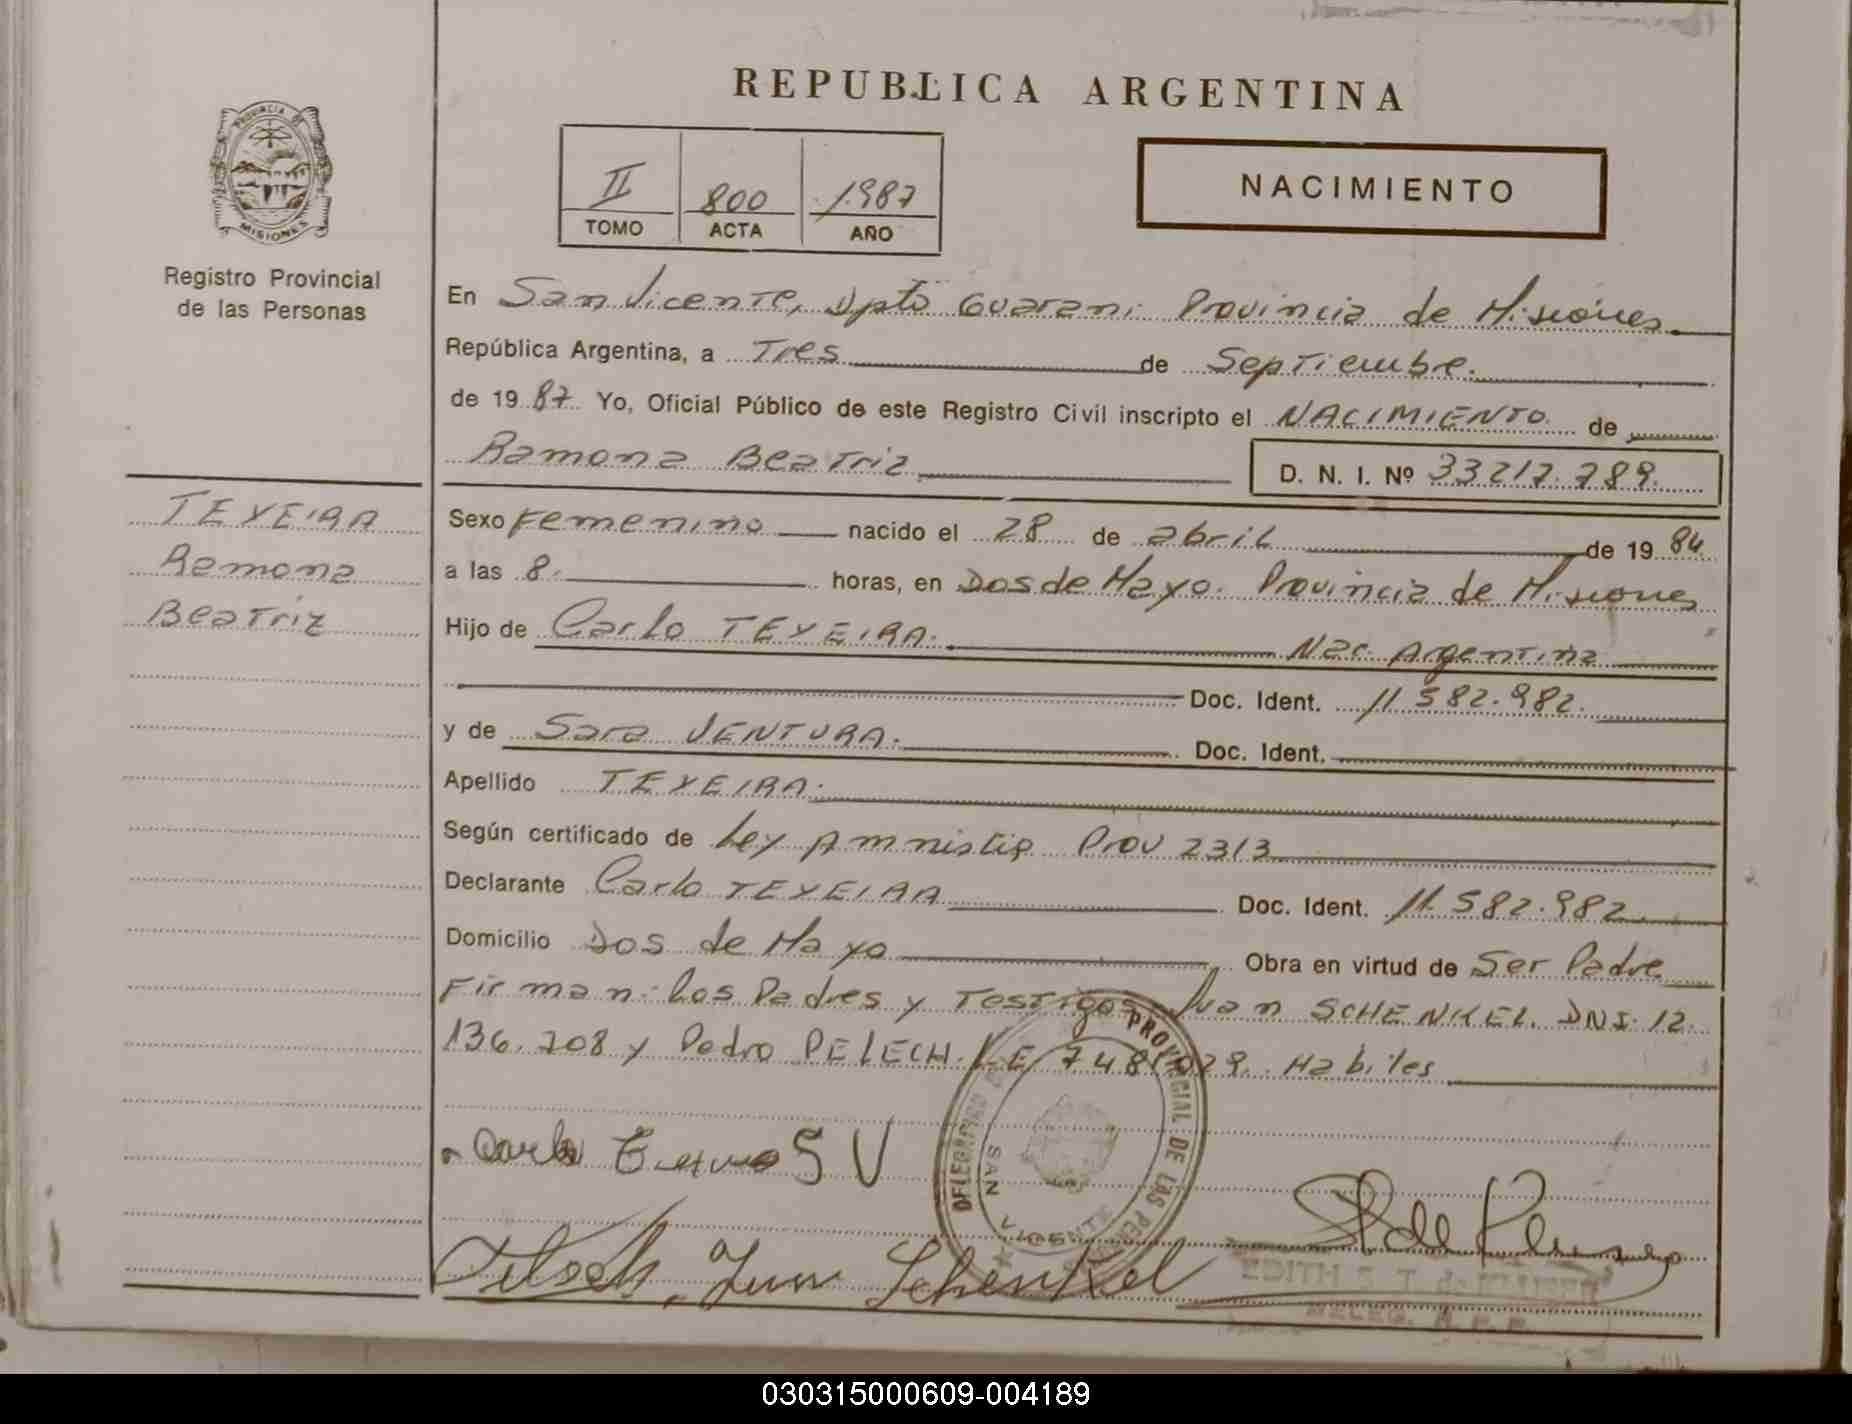 REPUBLICA ARGENTINA
PROVINCIA DE
MISIONES
Registro Provincial
de las Personas
II 800 1987
TOMO ACTA AÑO
NACIMIENTO
En San Vicente, Dpto Guarani Provincia de Misiones
República Argentina, a Tres de Septiembre.
de 1987 Yo, Oficial Público de este Registro Civil inscripto el NACIMIENTO de
Ramona Beatriz D. N. I. Nº 33217.789.
TEXEIRA
Ramona
Beatriz
Sexo Femenino nacido el 28 de abril de 1984
a las 8. horas, en Dos de Mayo. Provincia de Misiones
Hijo de Carlo TEXEIRA. Nac. Argentina
Doc. Ident. 11.582.982.
y de Sara VENTURA. Doc. Ident.
Apellido TEXEIRA.
Según certificado de Ley Amnistia Prov 2313
Declarante Carlo TEXEIRA Doc. Ident. 11.582.982
Domicilio Dos de Mayo Obra en virtud de Ser Padre
Firman: Los Padres y Testigos Juan SCHENKEL. DNI. 12.
136.708 y Pedro PELECH. LE 7481029. Habiles
PROVINCIAL DE LAS
SAN VICENTE
Carlo S V
Juan Schenkel
030315000609-004189